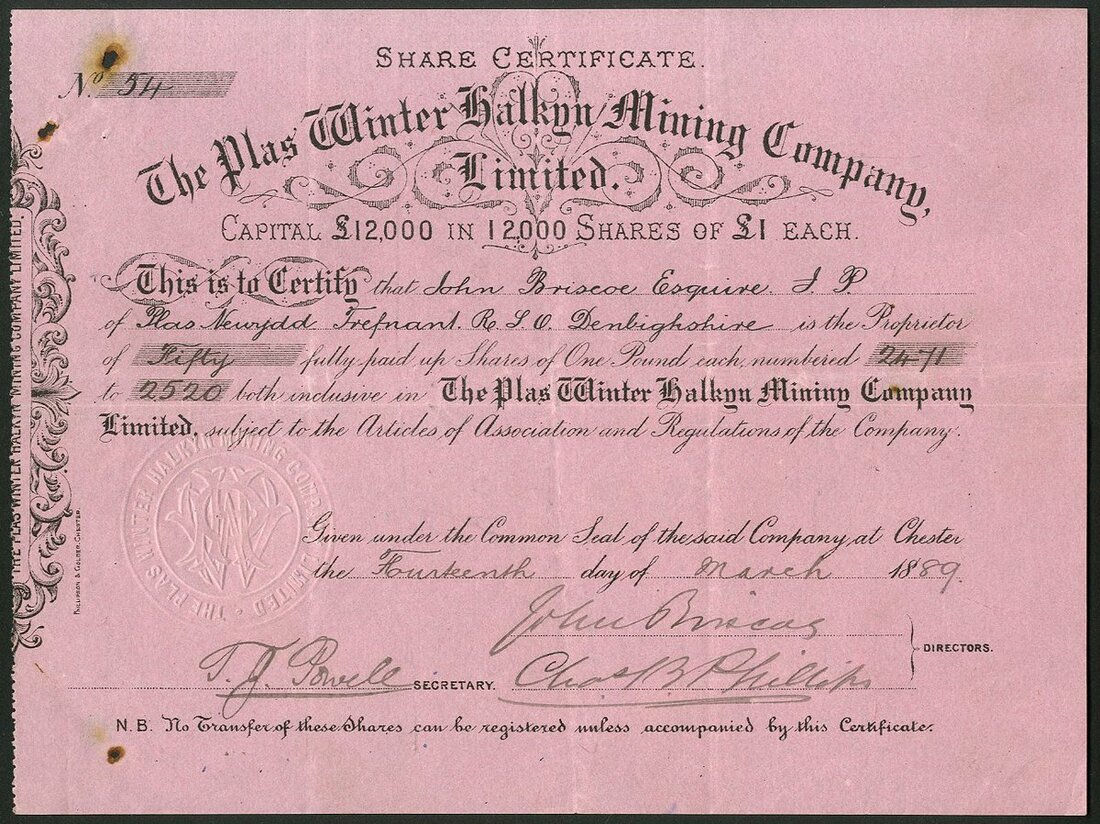 SHARE CERTIFICATE.
No. 54
The Plas Winter Halkyn Mining Company,
Limited.
CAPITAL £12,000 IN 12000 SHARES OF £1 EACH.
This is to Certify that John Briscoe Esquire. J P
of Plas Newydd Trefnant. R. S. O. Denbighshire is the Proprietor
of Fifty fully paid up Shares of One Pound each, numbered 2471
to 2520 both inclusive in The Plas Winter Halkyn Mining Company
Limited, subject to the Articles of Association and Regulations of the Company.
Given under the Common Seal of the said Company at Chester
the Fourteenth day of March 1889.
John Briscoe
DIRECTORS.
T. J. Powell SECRETARY. Chas B Phillips
N.B. No Transfer of these Shares can be registered unless accompanied by this Certificate.
THE PLAS WINTER HALKYN MINING COMPANY LIMITED.
PHILLIPSON & GOLDER, CHESTER.
THE PLAS WINTER HALKYN MINING COMPANY LIMITED